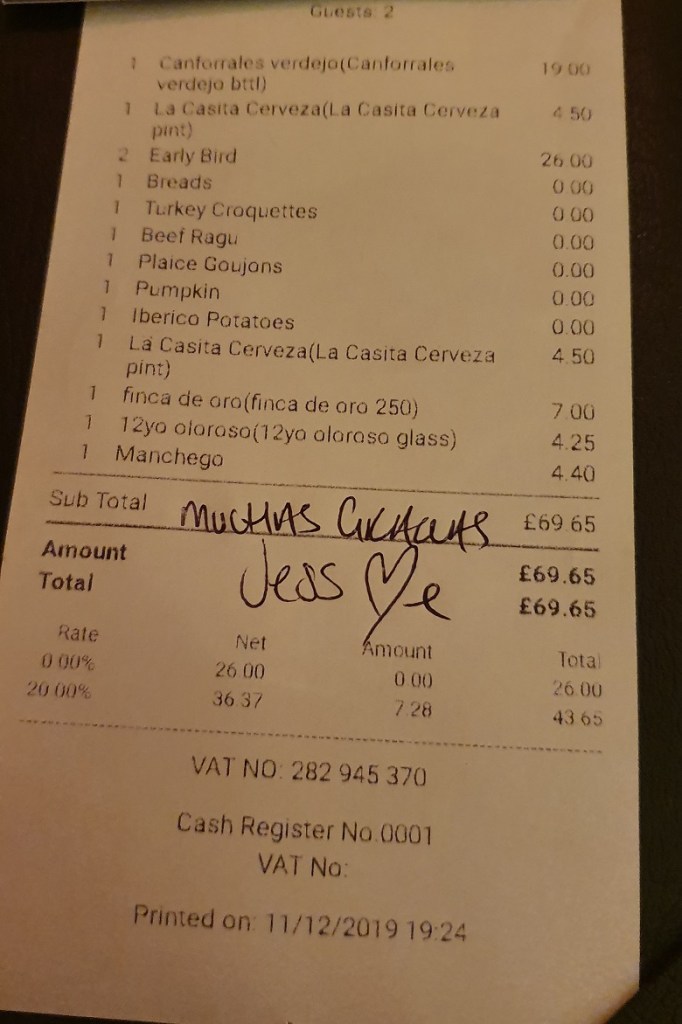 Guests 2
1 Canforrales verdejo(Canforrales verdejo bttl) 19.00
1 La Casita Cerveza(La Casita Cerveza pint) 4.50
2 Early Bird 26.00
1 Breads 0.00
1 Turkey Croquettes 0.00
1 Beef Ragu 0.00
1 Plaice Goujons 0.00
1 Pumpkin 0.00
1 Iberico Potatoes 0.00
1 La Casita Cerveza(La Casita Cerveza pint) 4.50
1 finca de oro(finca de oro 250) 7.00
1 12yo oloroso(12yo oloroso glass) 4.25
1 Manchego 4.40
Sub Total MUCHAS GRACIAS £69.65
Amount £69.65
Total Jess £69.65
Rate Net Amount Total
0.00% 26.00 0.00 26.00
20.00% 36.37 7.28 43.65
VAT NO: 282 945 370
Cash Register No.0001
VAT No:
Printed on: 11/12/2019 19:24